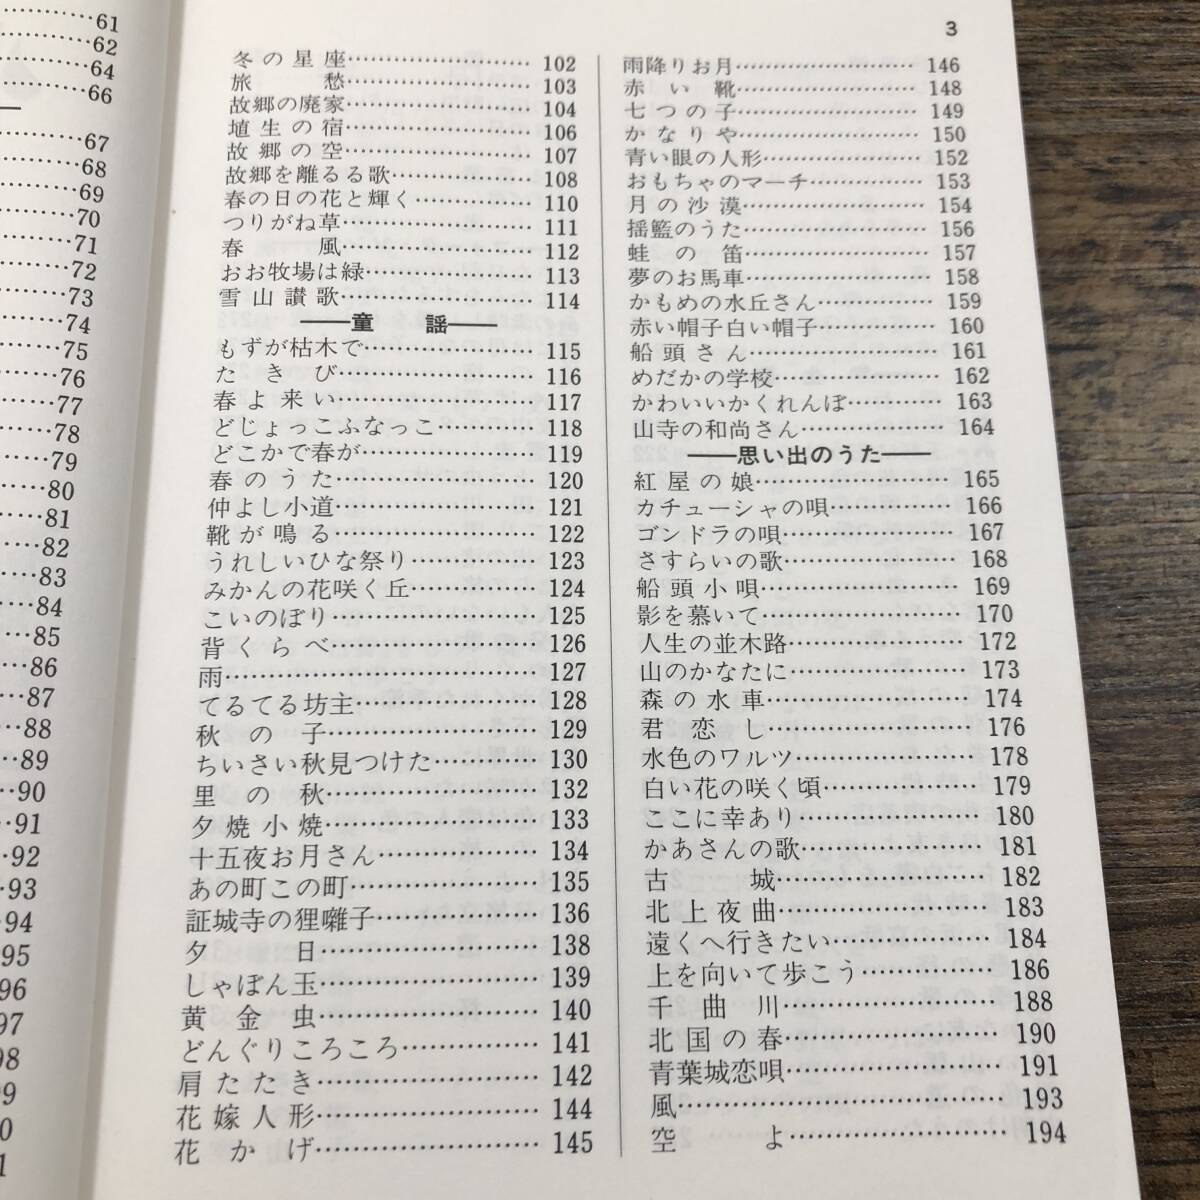 61
62
64
66
67
68
69
70
71
72
73
74
75
76
77
78
79
80
81
82
83
84
85
86
87
88
89
90
91
92
93
94
95
96
97
98
99
0
1
3
冬の星座……………………102
旅愁……………………103
故郷の廃家……………………104
埴生の宿……………………106
故郷の空……………………107
故郷を離るる歌……………………108
春の日の花と輝く……………………110
つりがね草……………………111
春風……………………112
おお牧場は緑……………………113
雪山讃歌……………………114
――童謡――
もずが枯木で……………………115
たきび……………………116
春よ来い……………………117
どじょっこふなっこ……………………118
どこかで春が……………………119
春のうた……………………120
仲よし小道……………………121
靴が鳴る……………………122
うれしいひな祭り……………………123
みかんの花咲く丘……………………124
こいのぼり……………………125
背くらべ……………………126
雨……………………127
てるてる坊主……………………128
秋の子……………………129
ちいさい秋見つけた……………………130
里の秋……………………132
夕焼小焼……………………133
十五夜お月さん……………………134
あの町この町……………………135
証城寺の狸囃子……………………136
夕日……………………138
しゃぼん玉……………………139
黄金虫……………………140
どんぐりころころ……………………141
肩たたき……………………142
花嫁人形……………………144
花かげ……………………145
雨降りお月……………………146
赤い靴……………………148
七つの子……………………149
かなりや……………………150
青い眼の人形……………………152
おもちゃのマーチ……………………153
月の沙漠……………………154
揺籃のうた……………………156
蛙の笛……………………157
夢のお馬車……………………158
かもめの水丘さん……………………159
赤い帽子白い帽子……………………160
船頭さん……………………161
めだかの学校……………………162
かわいいかくれんぼ……………………163
山寺の和尚さん……………………164
――思い出のうた――
紅屋の娘……………………165
カチューシャの唄……………………166
ゴンドラの唄……………………167
さすらいの歌……………………168
船頭小唄……………………169
影を慕いて……………………170
人生の並木路……………………172
山のかなたに……………………173
森の水車……………………174
君恋し……………………176
水色のワルツ……………………178
白い花の咲く頃……………………179
ここに幸あり……………………180
かあさんの歌……………………181
古城……………………182
北上夜曲……………………183
遠くへ行きたい……………………184
上を向いて歩こう……………………186
千曲川……………………188
北国の春……………………190
青葉城恋唄……………………191
風……………………193
空よ……………………194